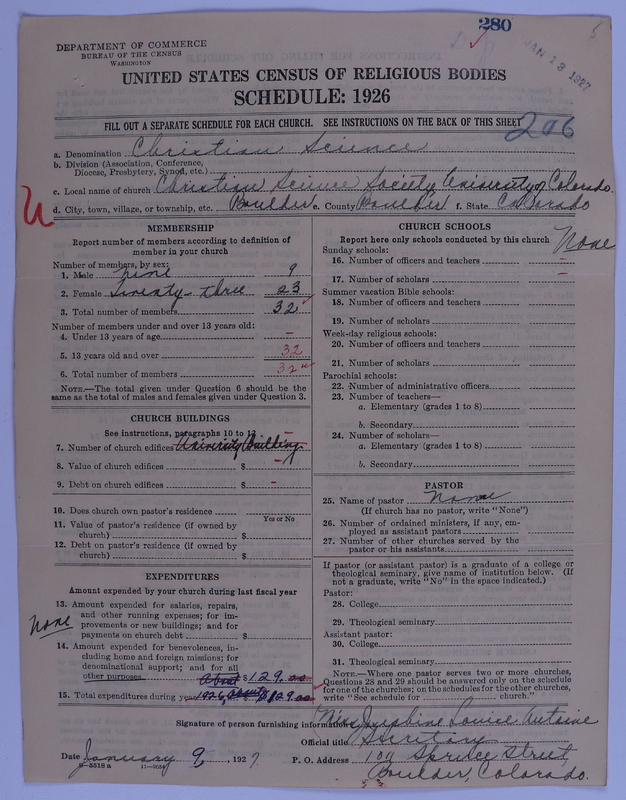 280
JAN 13 1927
DEPARTMENT OF COMMERCE
BUREAU OF THE CENSUS
WASHINGTON
UNITED STATES CENSUS OF RELIGIOUS BODIES
SCHEDULE: 1926
FILL OUT A SEPARATE SCHEDULE FOR EACH CHURCH. SEE INSTRUCTIONS ON THE BACK OF THIS SHEET
206
a. Denomination Christian Science
b. Division (Association, Conference,
Diocese, Presbytery, Synod, etc.)
c. Local name of church Christian Science Society, University of Colorado.
d. City, town, village, or township, etc. Boulder e. County Boulder f. State Colorado
U
MEMBERSHIP
Report number of members according to definition of
member in your church
Number of members, by sex:
1. Male nine 9
2. Female Twenty-three 23
3. Total number of members 32
Number of members under and over 13 years old:
4. Under 13 years of age –
5. 13 years old and over 32
6. Total number of members 32
NOTE.—The total given under Question 6 should be
the same as the total of males and females given under Question 3.
CHURCH BUILDINGS
See instructions, paragraphs 10 to 12 –
7. Number of church edifices University Building
8. Value of church edifices $ –
9. Debt on church edifices $ –
10. Does church own pastor's residence
Yes or No
11. Value of pastor's residence (if owned by
church) $
12. Debt on pastor's residence (if owned by
church) $
EXPENDITURES
Amount expended by your church during last fiscal year
none
13. Amount expended for salaries, repairs,
and other running expenses; for im-
provements or new buildings; and for
payments on church debt $
14. Amount expended for benevolences, in-
cluding home and foreign missions; for
denominational support; and for all
other purposes About $129.00
15. Total expenditures during year 1926, about $129.00
CHURCH SCHOOLS
Report here only schools conducted by this church None
Sunday schools:
16. Number of officers and teachers –
17. Number of scholars –
Summer vacation Bible schools:
18. Number of officers and teachers
19. Number of scholars
Week-day religious schools:
20. Number of officers and teachers
21. Number of scholars
Parochial schools:
22. Number of administrative officers
23. Number of teachers—
a. Elementary (grades 1 to 8)
b. Secondary
24. Number of scholars—
a. Elementary (grades 1 to 8)
b. Secondary
PASTOR
25. Name of pastor None
(If church has no pastor, write "None")
26. Number of ordained ministers, if any, em-
ployed as assistant pastors
27. Number of other churches served by the
pastor or his assistants
If pastor (or assistant pastor) is a graduate of a college or
theological seminary, give name of institution below. (If
not a graduate, write "No" in the space indicated.)
Pastor:
28. College
29. Theological seminary
Assistant pastor:
30. College
31. Theological seminary
NOTE.—Where one pastor serves two or more churches,
Questions 28 and 29 should be answered only on the schedule
for one of the churches; on the schedules for the other churches,
write "See schedule for church."
Signature of person furnishing information Miss Josephine Louise Antoine
Official title Secretary
Date January 9, 1927 P. O. Address 104 Spruce Street,
8-5518 a
Boulder, Colorado.